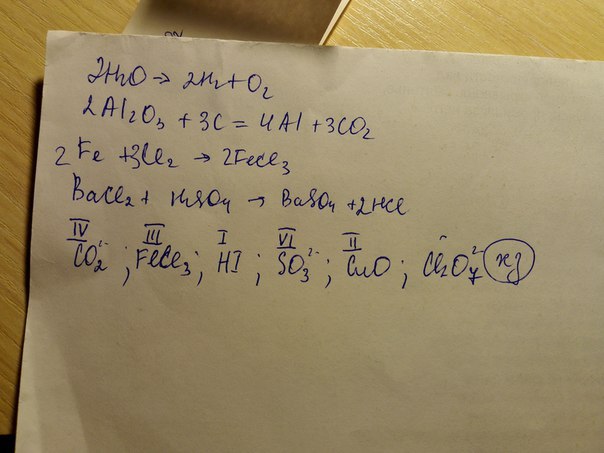 2H₂O → 2H₂ + O₂
2Al₂O₃ + 3C = 4Al + 3CO₂
2Fe + 3Cl₂ → 2FeCl₃
BaCl₂ + H₂SO₄ → BaSO₄ + 2HCl
IV III I VI II
CO₂²⁻ ; FeCl₃ ; HI ; SO₃²⁻ ; CuO ; Cl₂O₇²⁻ хз